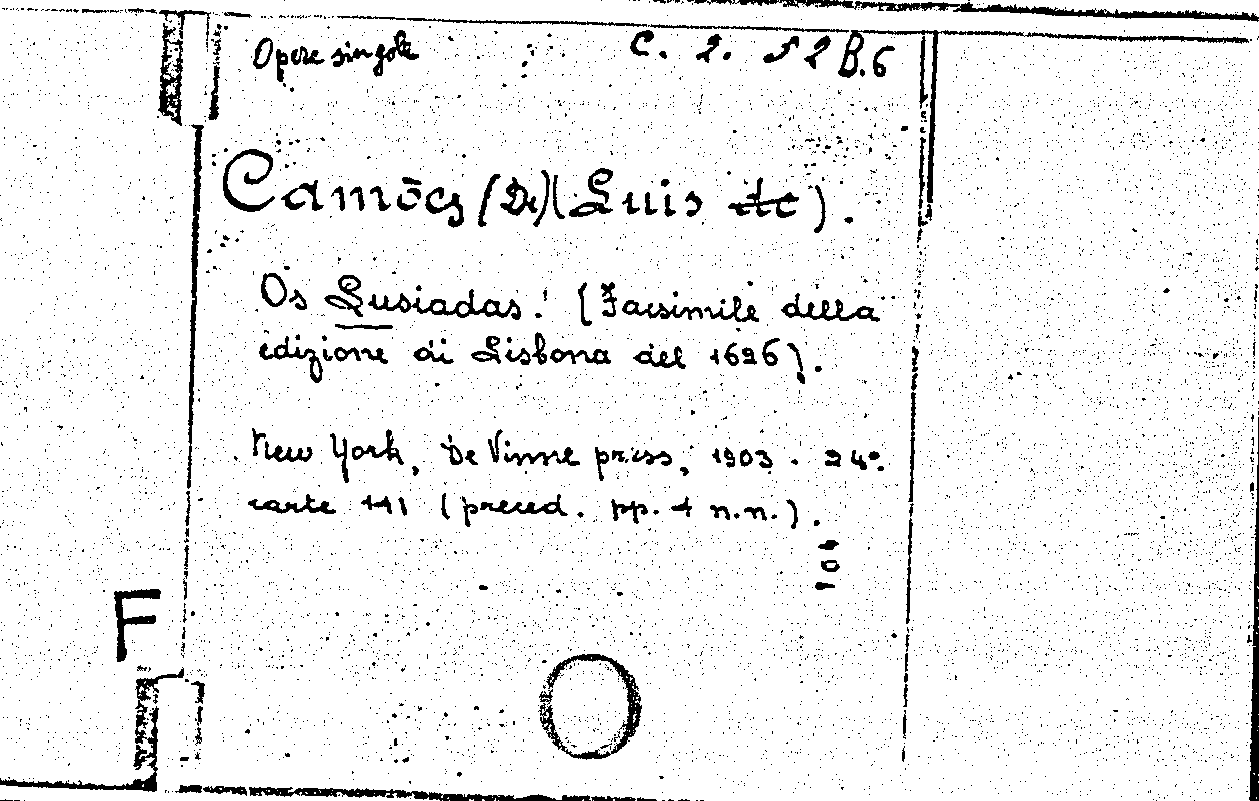 Opere singole
C. 2. 52 B.6
Camões (De) (Luis de).
Os Lusiadas. (Facsimile della
edizione di Lisbona del 1626).
New York, De Vinne press, 1903. 24°.
carte 141 (preced. pp. 4 n.n.).
F